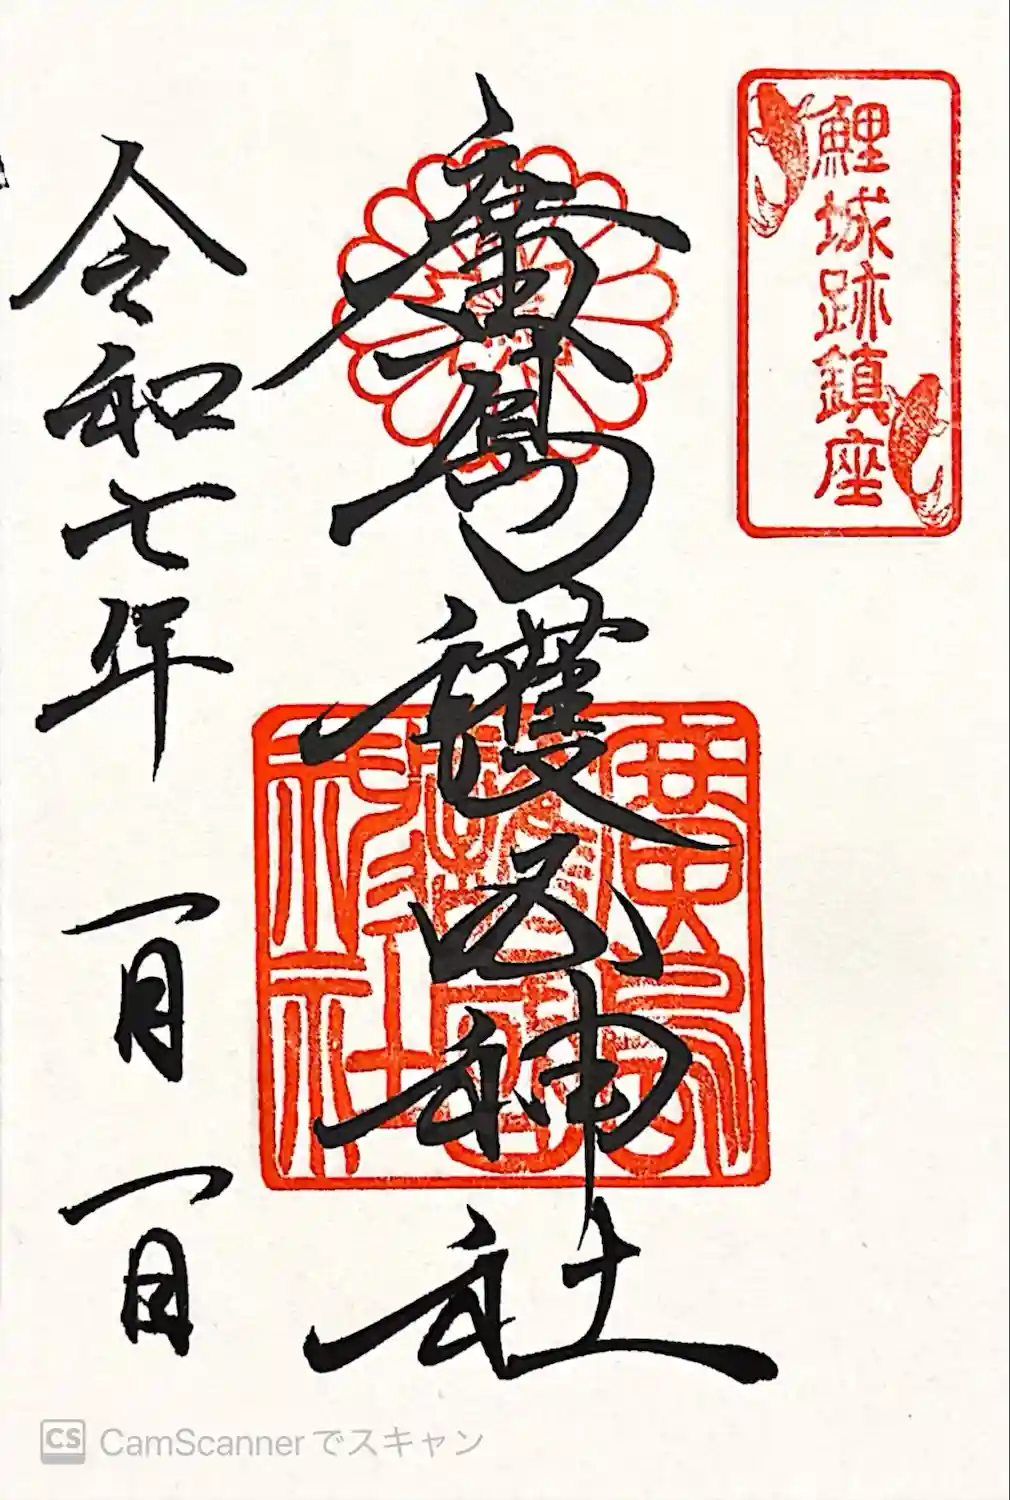 鯉城跡鎮座
廣島護国神社
廣島護國神社
令和七年 一月 一日
CS CamScannerでスキャン